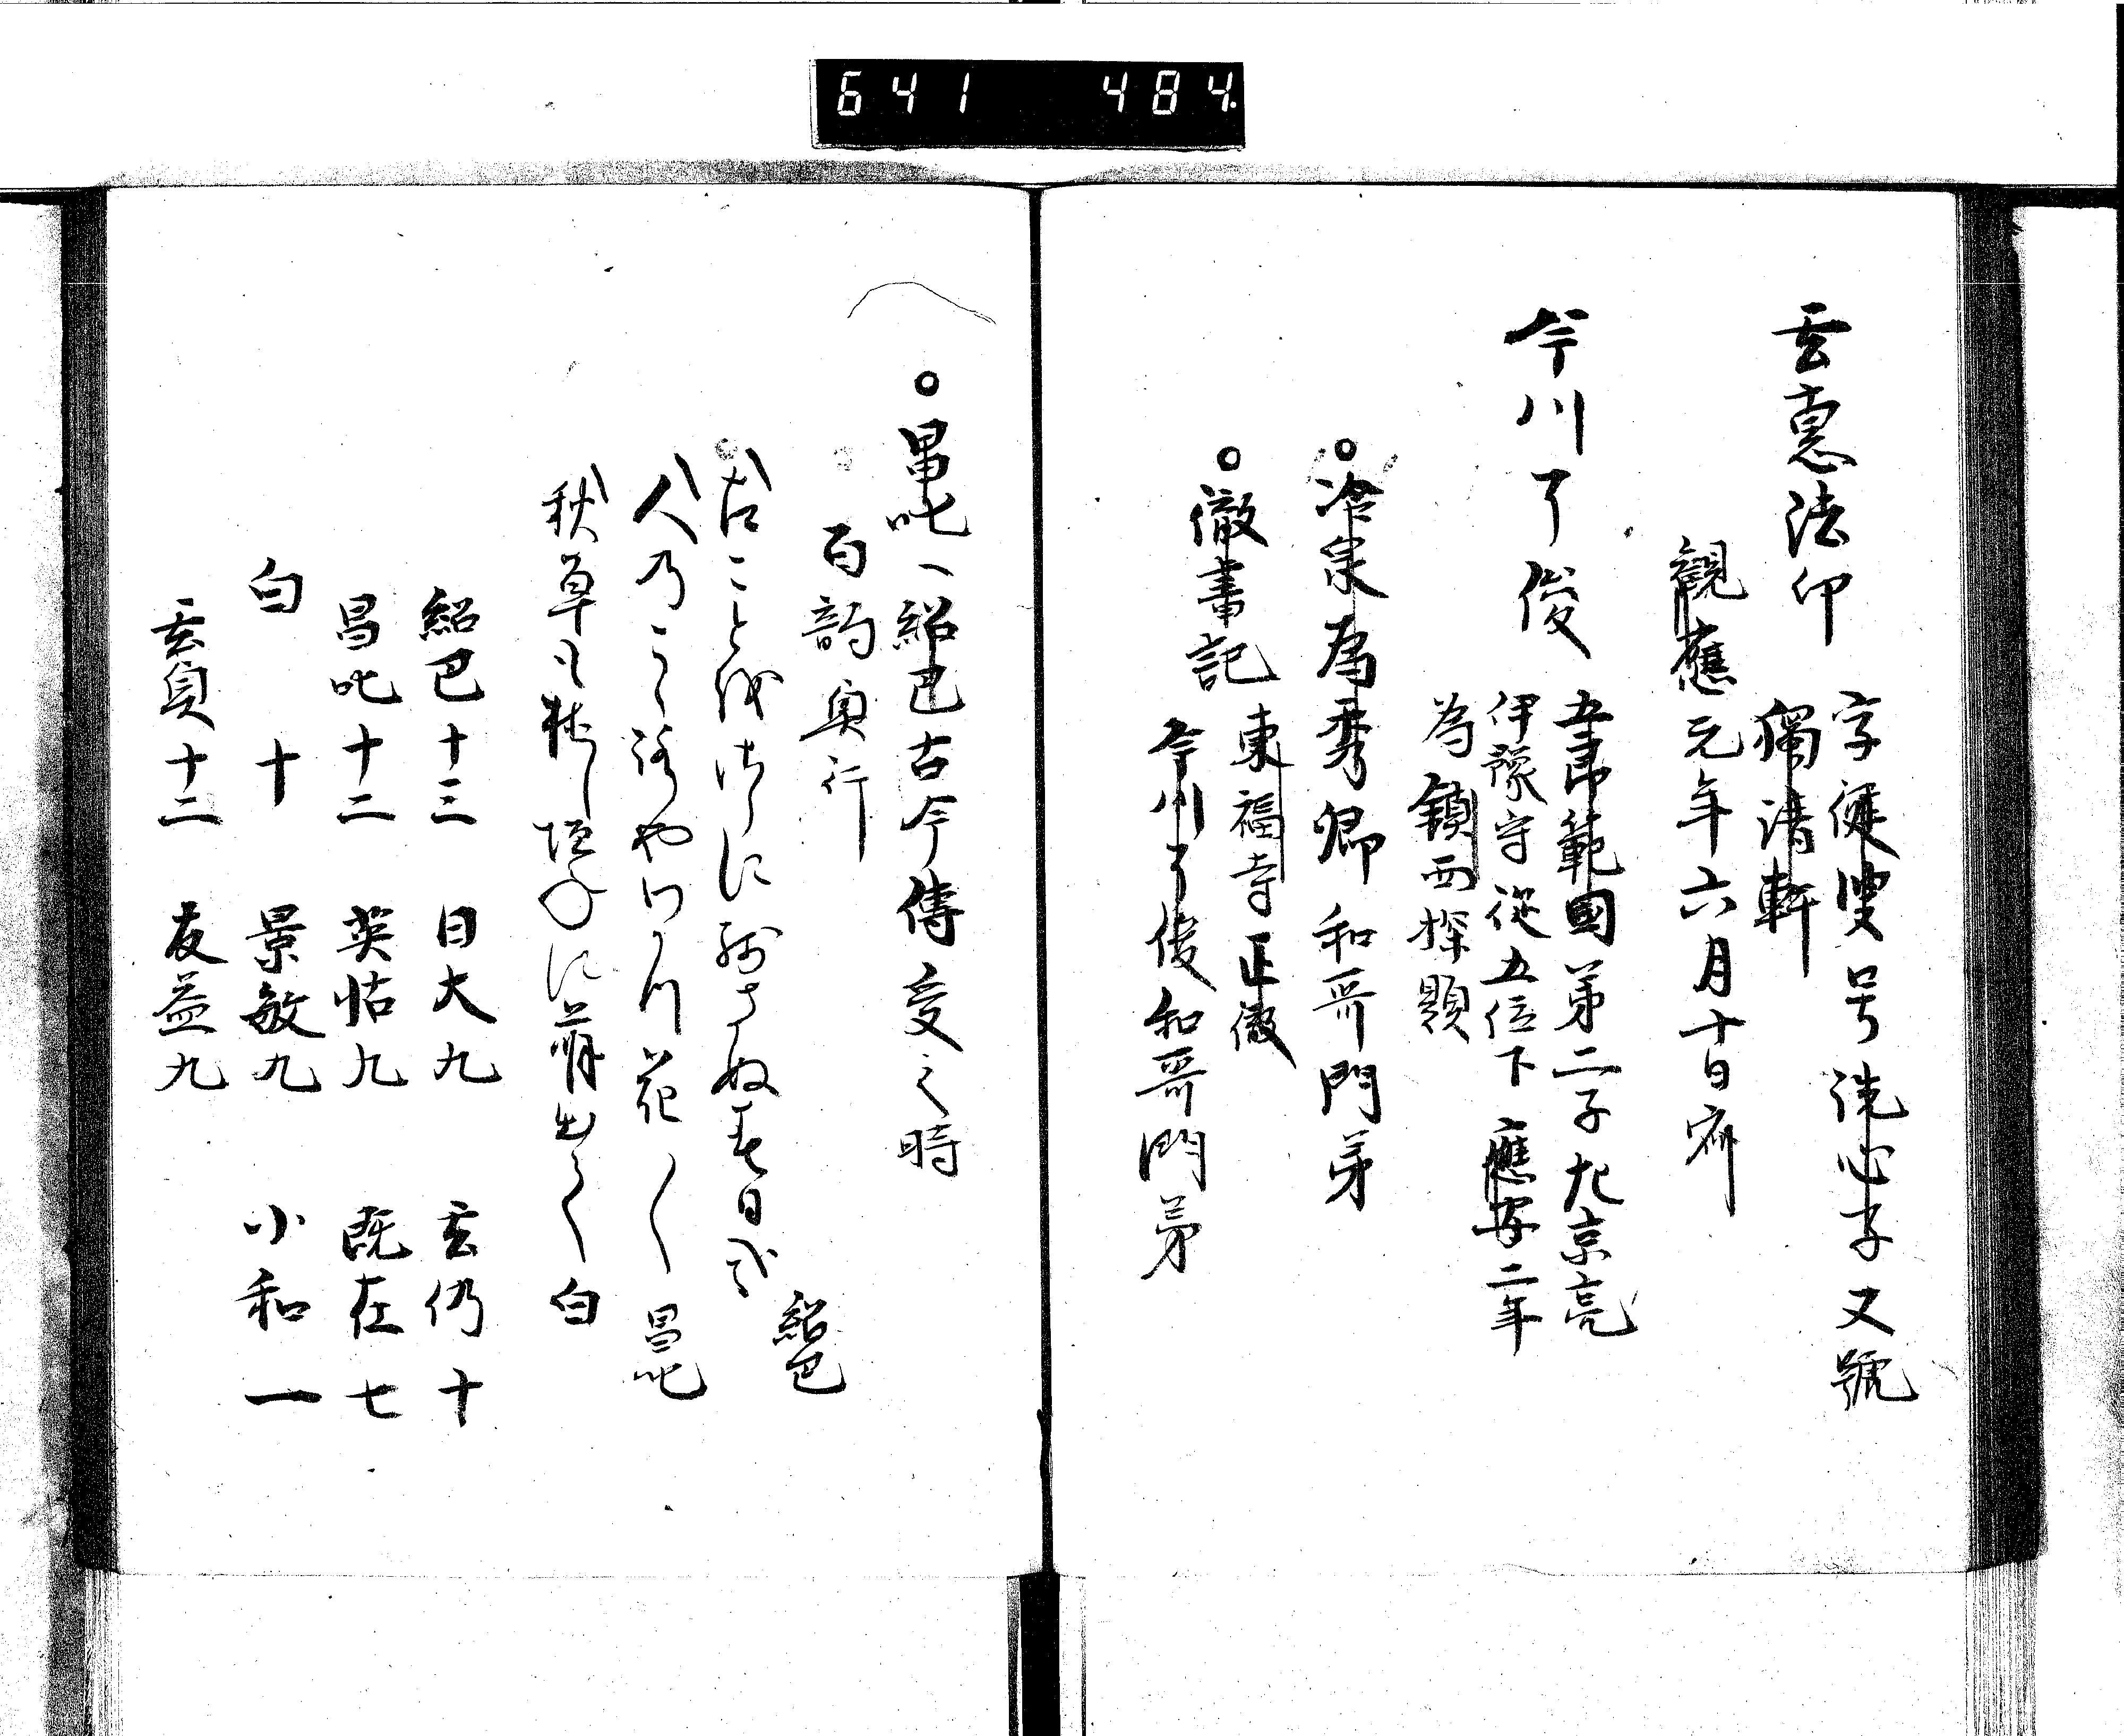 641 484
玄惠法印
字健叟号洗心子又號
獨清軒
觀應元年六月十日寂
今川了俊
五郎範國第二子左京亮
伊豫守従五位下應安二年
為鎮西探題
冷泉為秀卿和哥門弟
徹書記
東福寺正徹
今川了俊和哥門弟
昌叱ヘ紹巴古今傳受之時
百韵奥行
紹巴
人のこゝろやわかつ花く 昌叱
秋草も 垣ねに萠出て 白
紹巴十三 日大九 玄仍十
昌叱十二 英怙九 既在七
白 十 景敏九 小和一
玄與十二 友益九